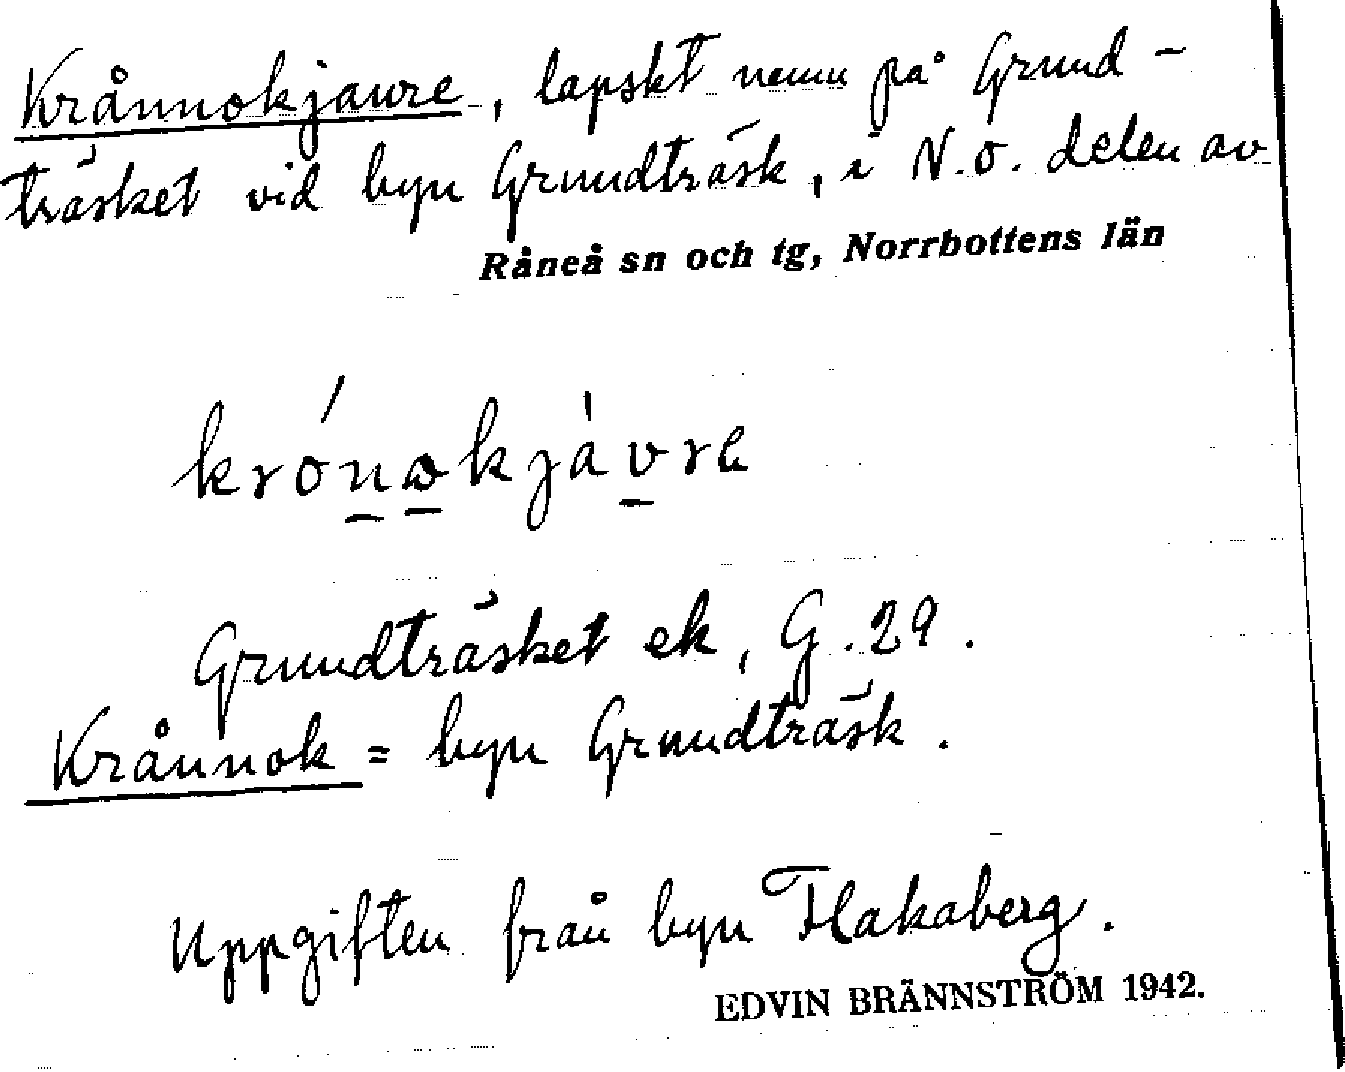 Krånnokjaure, lapskt namn på Grund-
träsket vid byn Grundträsk, i N.ö. delen av
Råneå sn och tg, Norrbottens län
krónokjàvre
Grundträsket ek, G.29.
Krånnok = byn Grundträsk.
Uppgiften från byn Flakaberg.
EDVIN BRÄNNSTRÖM 1942.